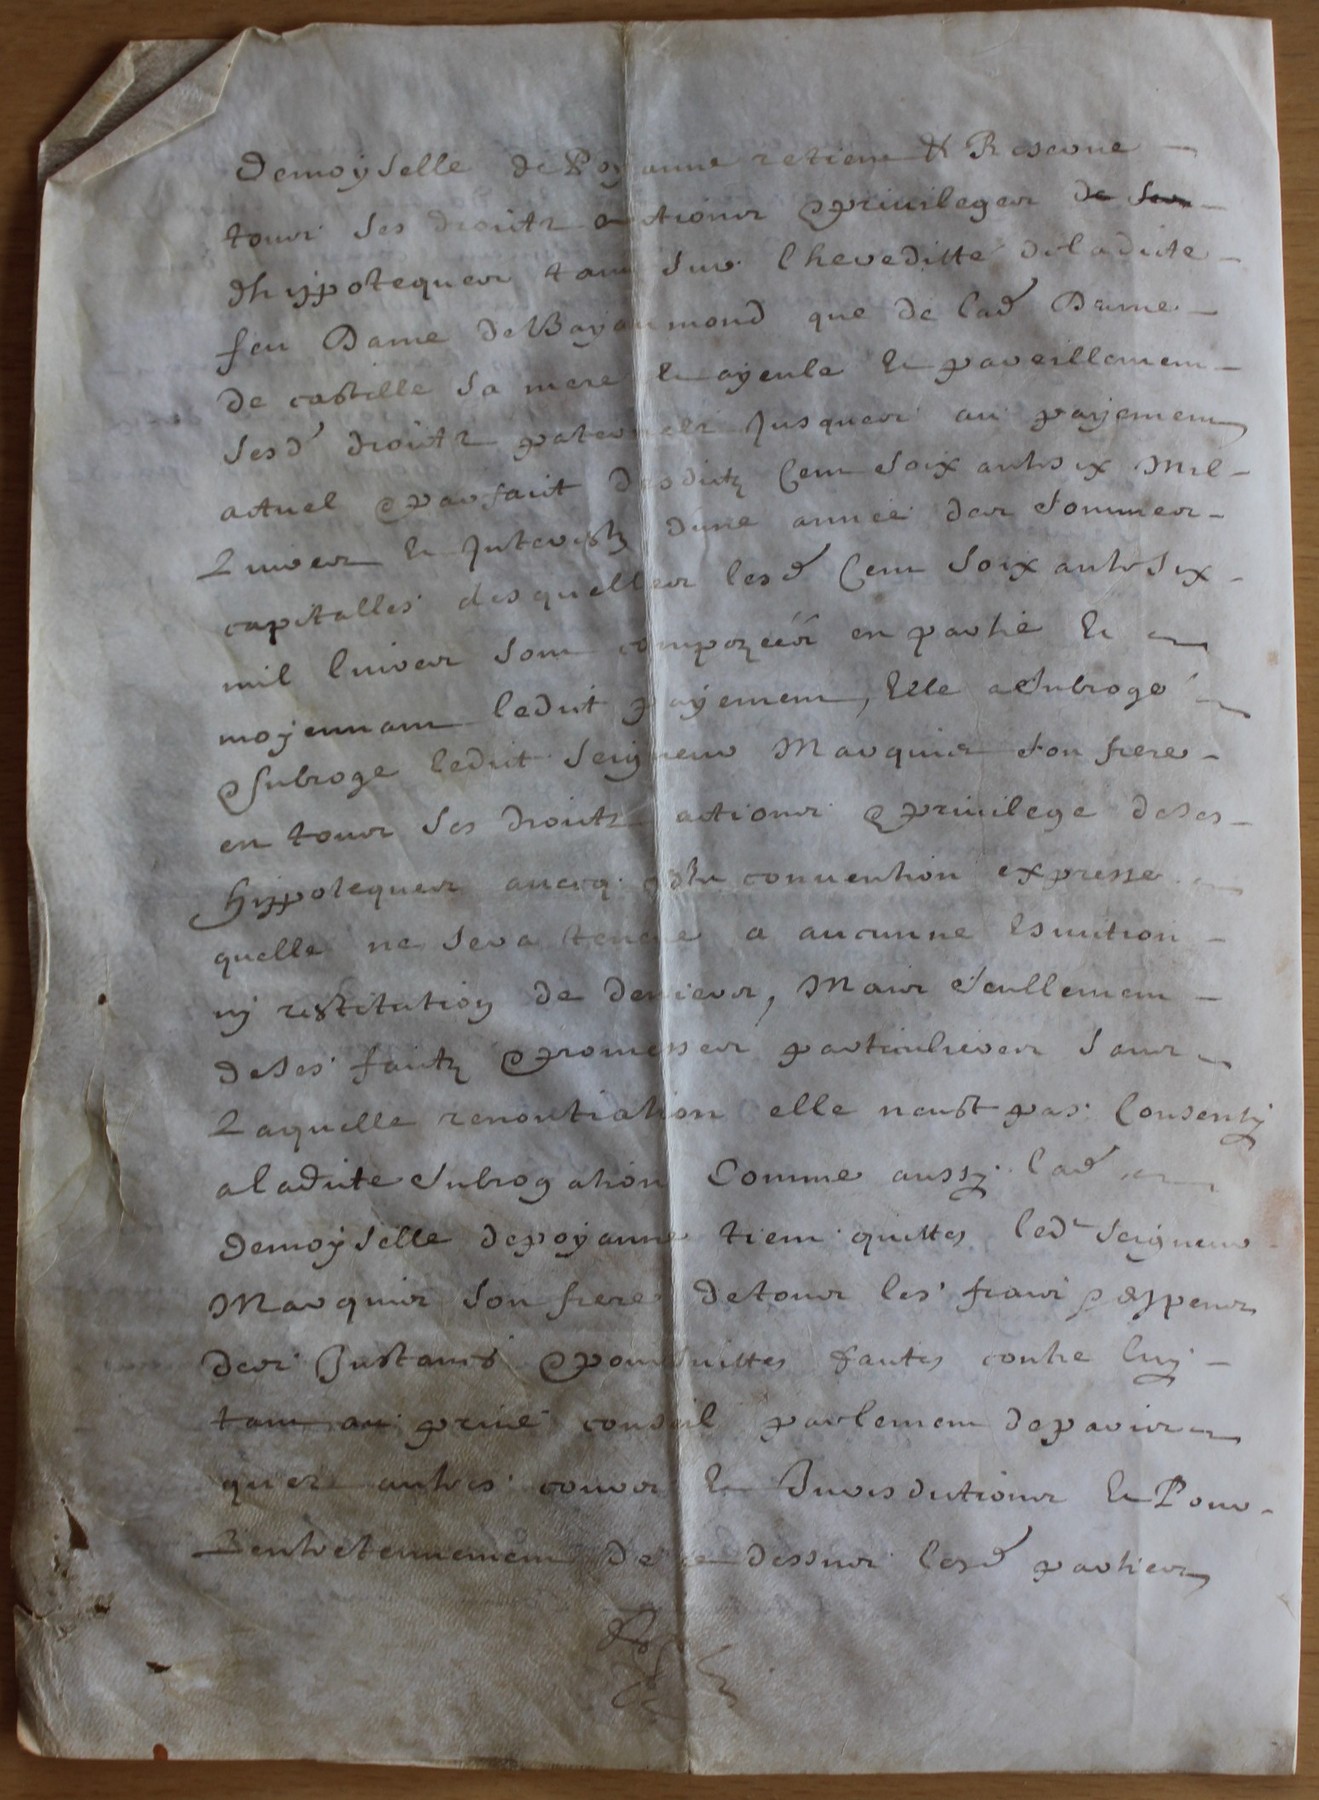 Demoyselle de Poyanne retient & Reserue
tous ses droits actions & priuileges de ses
& hippoteques tant sur lhereditte deladicte
feu Dame de Bayaumond que de lad Dame
de castille sa mere & ayeule & pareillement
sesd droits paternels jusques au payement
actuel & parfait desdictz Cent soixante six mil
Liures & Interestz d'une année des sommes
capitalles desquelles lesd Cent soixante six
mil liures sont compozéés en partie &
moyennant ledit payement, Elle a subrogé
& subroge ledit seigneur Marquis son frere
en tous ses droits actions & priuilege de ses
hippoteques auecq conuention expresse
quelle ne sera tenue a aucunne Esuiction
ny restitution de deniers, Mais seullement
de ses faitz & promesses particulieres sans
Laquelle renontiation elle neust pas Consenty
a ladite subrogation Comme aussy lad
Demoyselle depoyanne tient quittes led seigneur
Marquis son frere de tous les frais & despens
des Instances & poursuittes faites contre luy
tant au priué conseil parlement de paris
ques autres cours & Jurisdictions & Pour
Lentretennement de ce dessus lesd parties